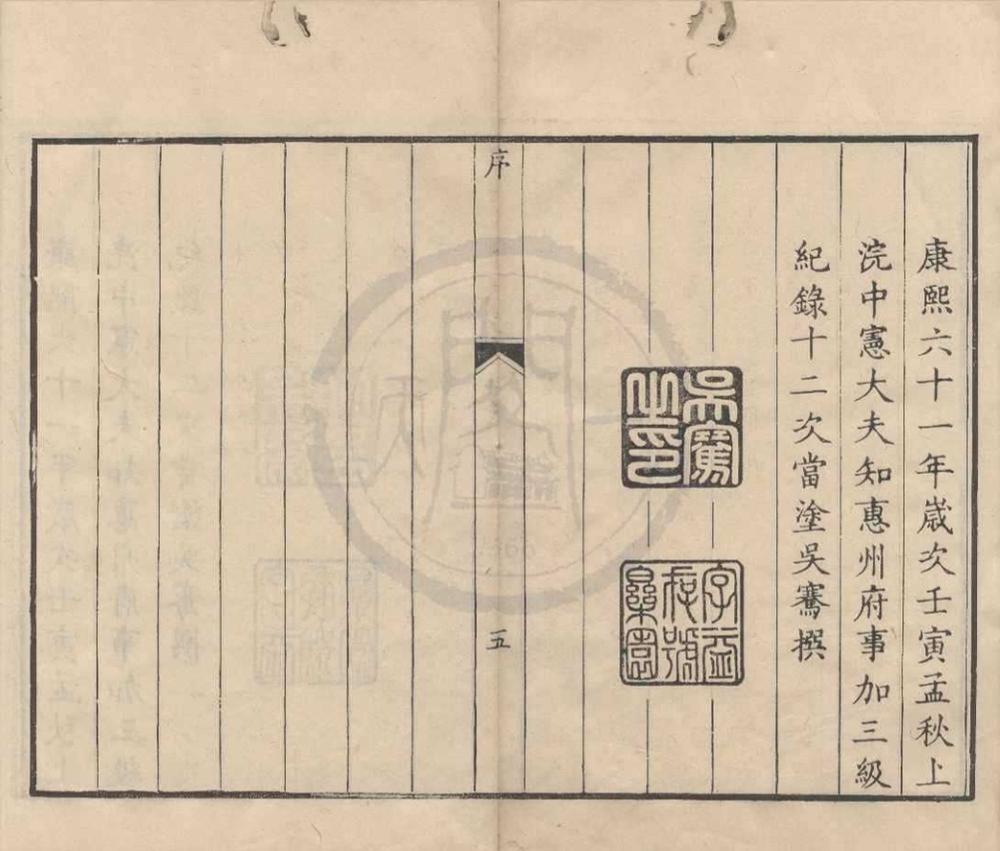 康熙六十一年歲次壬寅孟秋上
浣中憲大夫知惠州府事加三級
紀錄十二次當塗吳騫撰
吳騫
之印
序
五